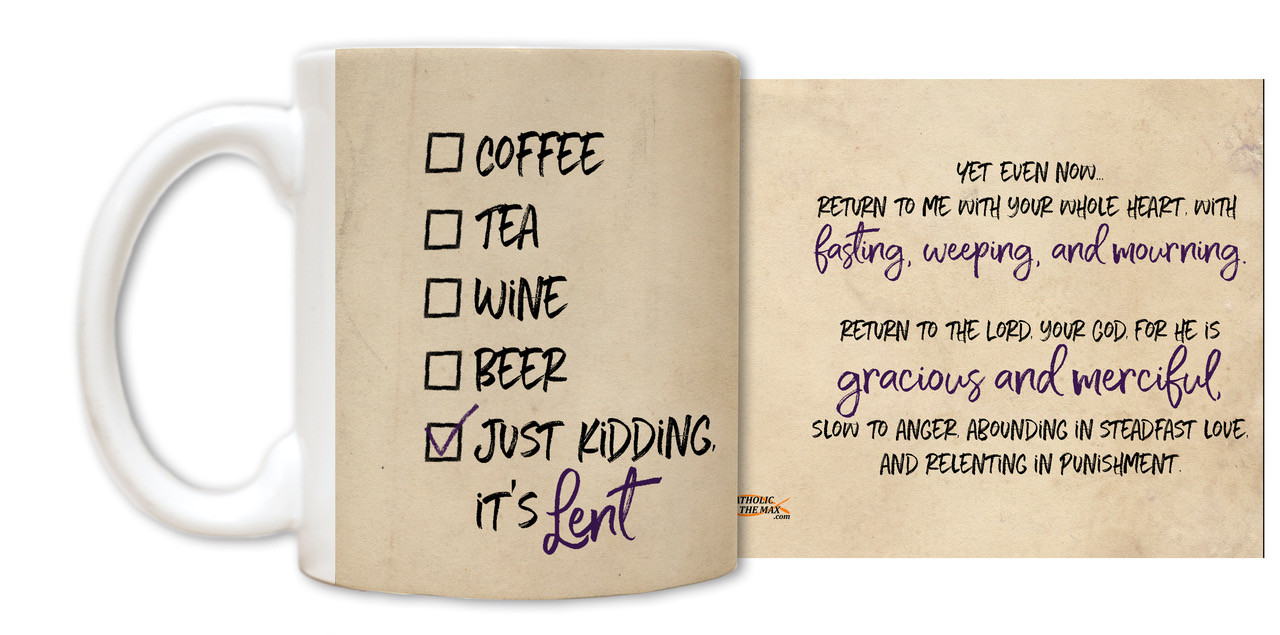 COFFEE
TEA
WiNE
BEER
JUST KiDDiNG,
iT'S Lent
YET EVEN NOW...
RETURN TO ME WiTH YOUR WHOLE HEART, WiTH
fasting, weeping, and mourning.
RETURN TO THE LORD, YOUR GOD, FOR HE iS
gracious and merciful,
SLOW TO ANGER, ABOUNDiNG iN STEADFAST LOVE,
AND RELENTiNG iN PUNiSHMENT.
ATHOLIC
THE MAX
.com